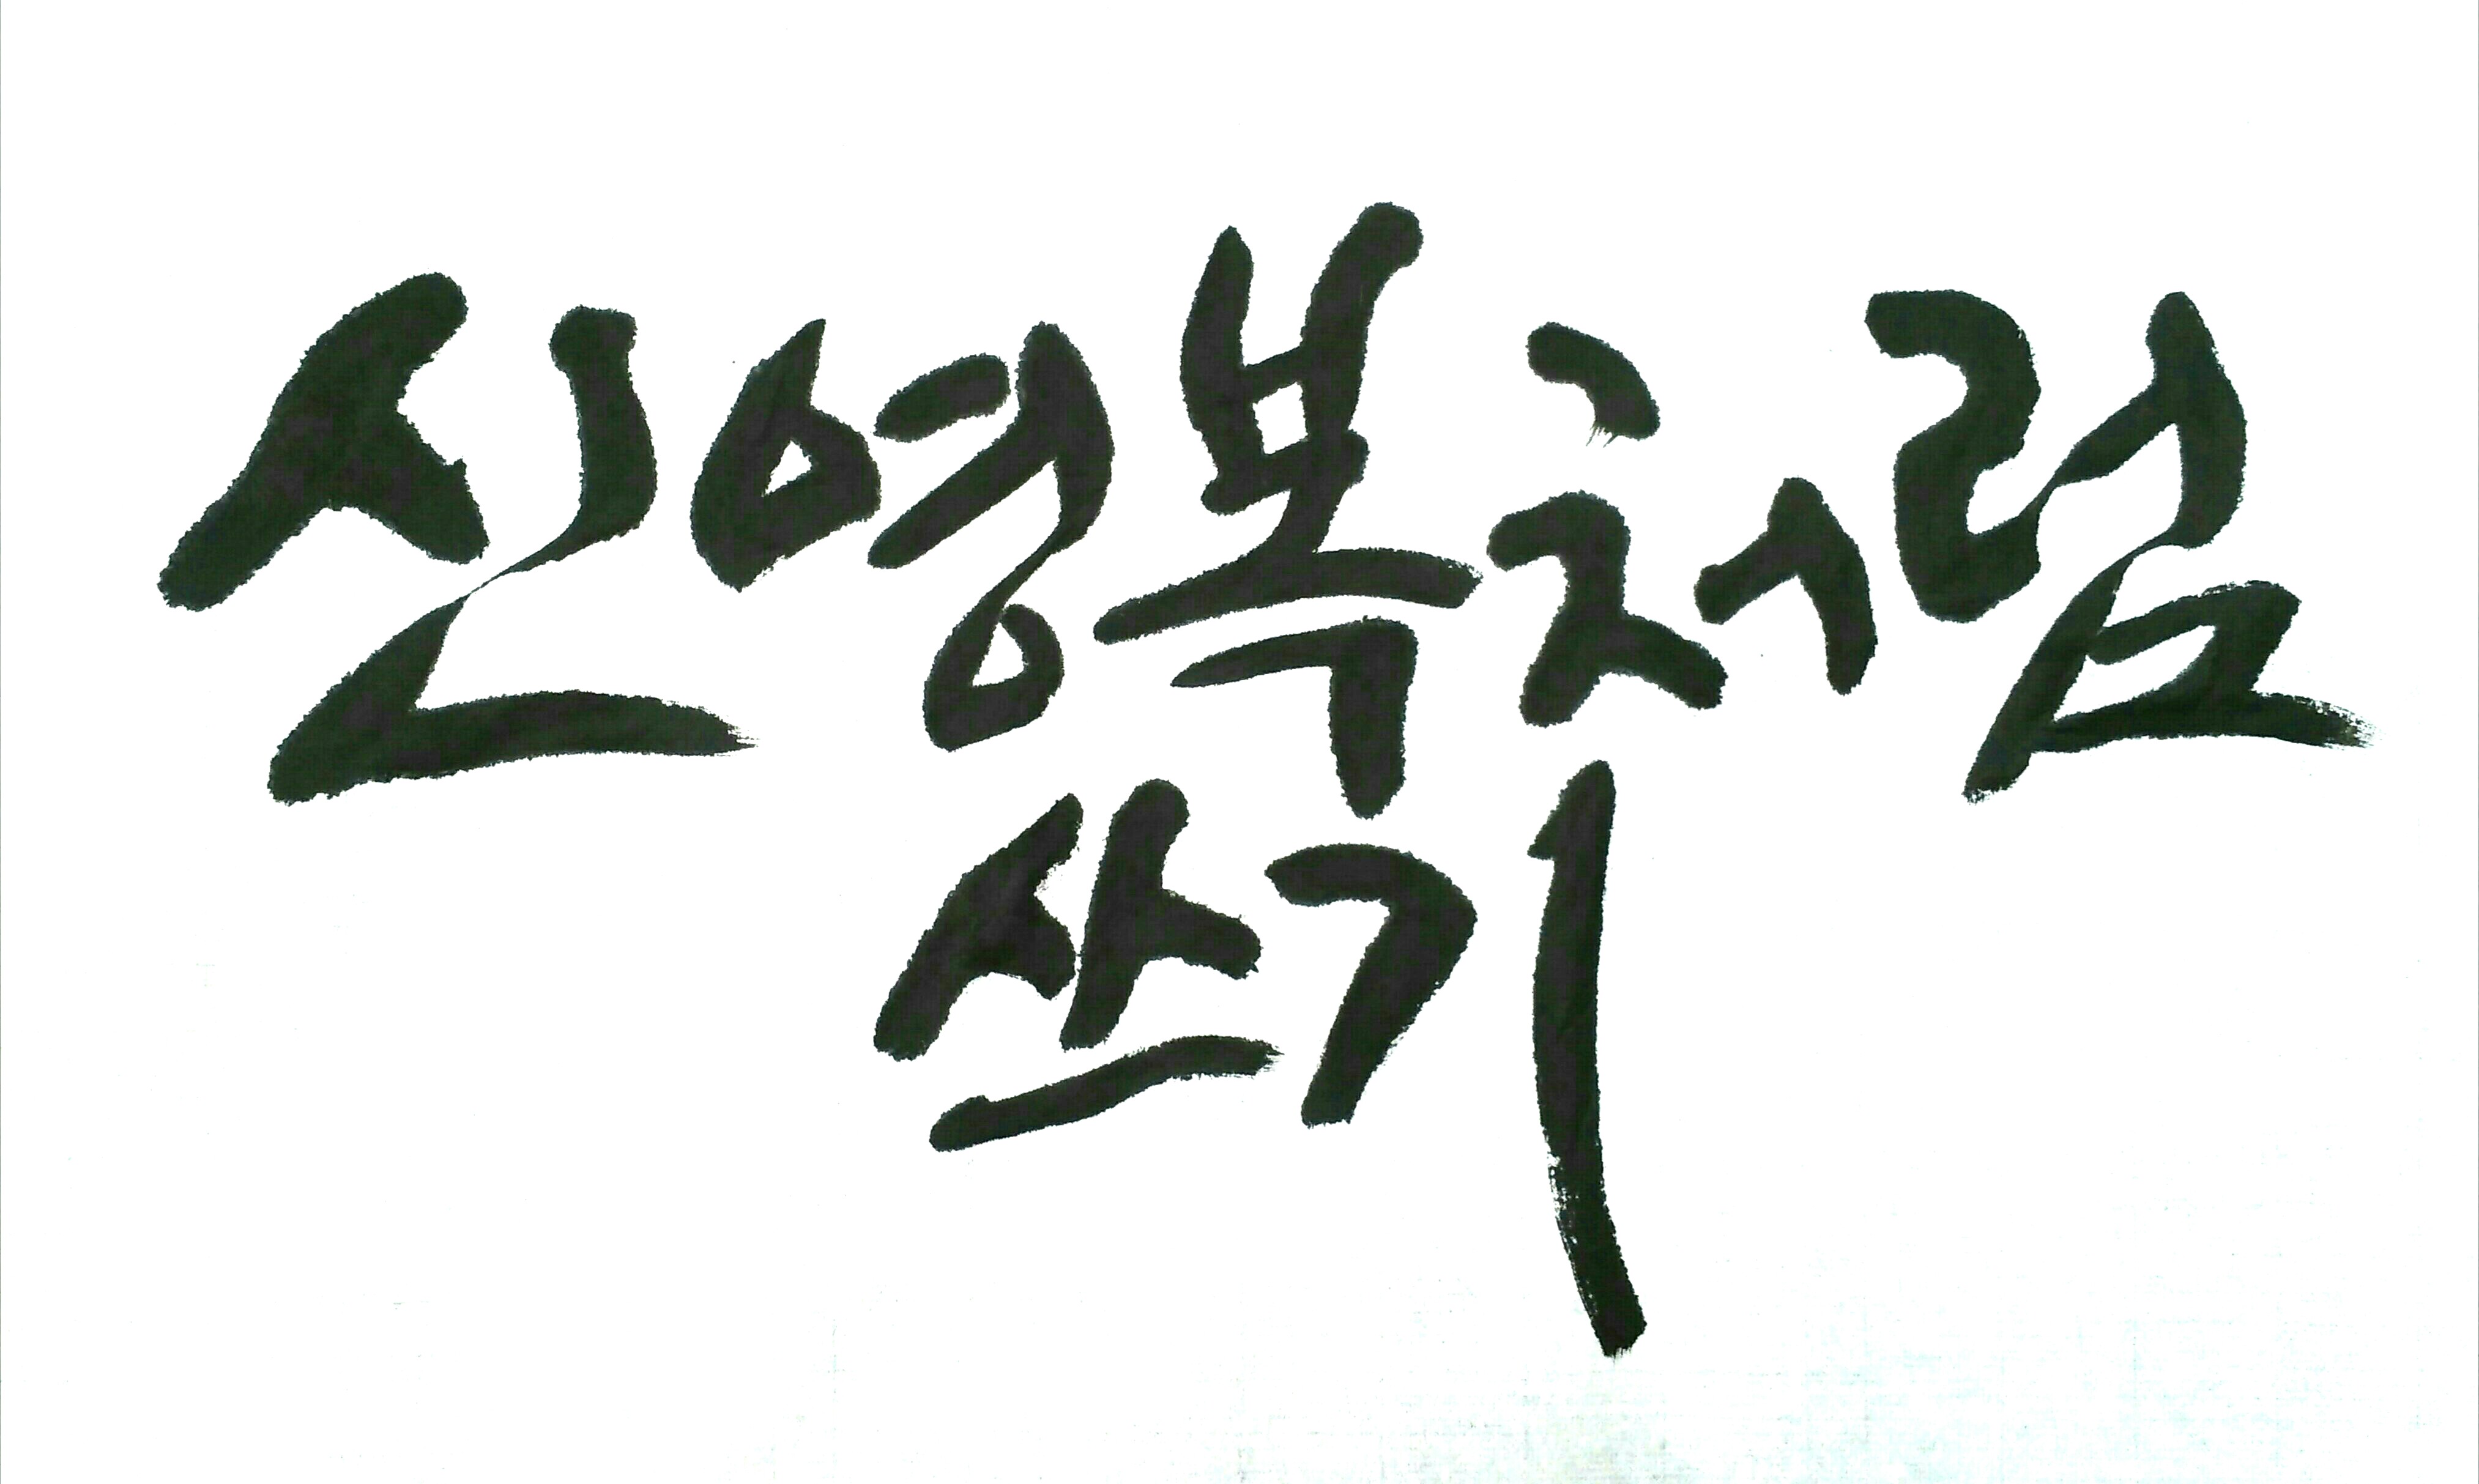 신영복처럼
쓰기